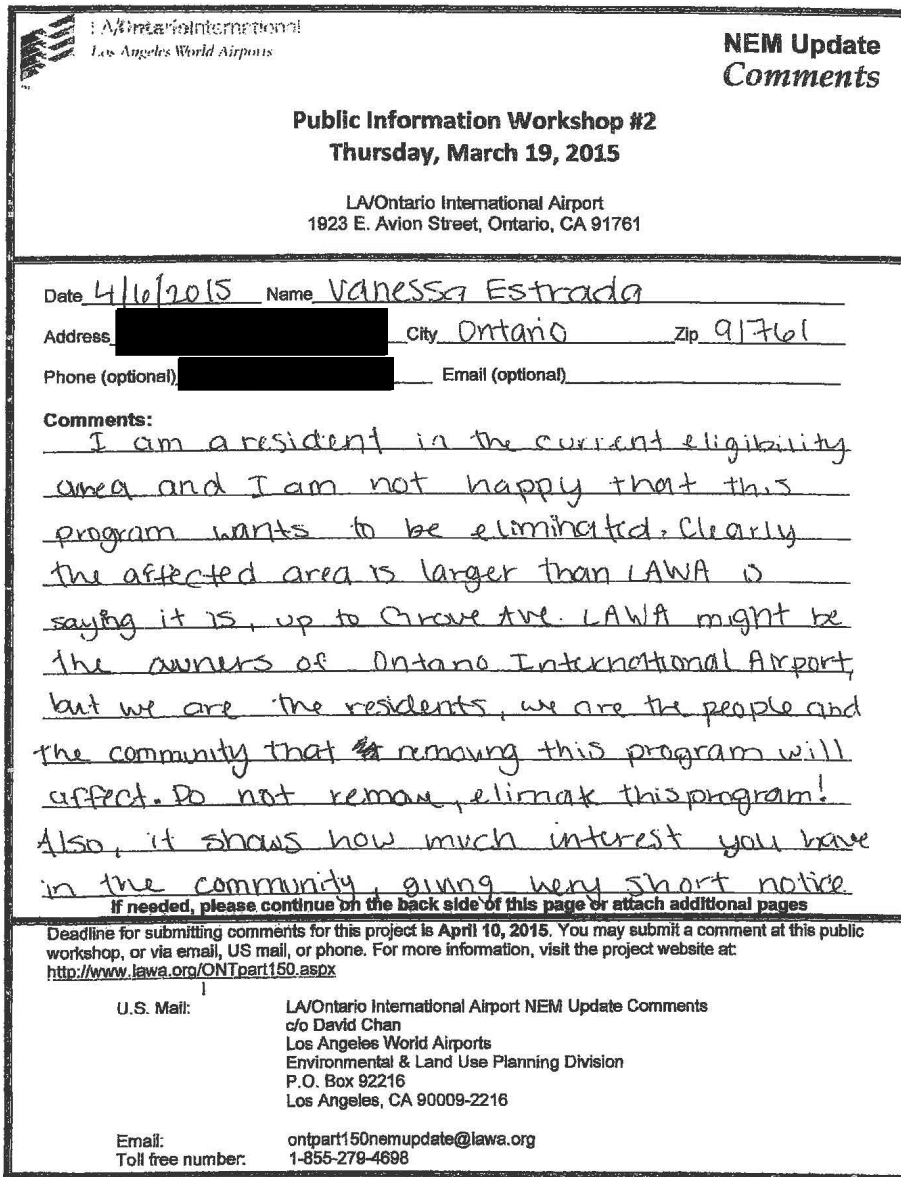 LA/OntarioInternational
Los Angeles World Airports
NEM Update
Comments
Public Information Workshop #2
Thursday, March 19, 2015
LA/Ontario International Airport
1923 E. Avion Street, Ontario, CA 91761
Date 4/6/2015 Name Vanessa Estrada
Address City Ontario Zip 91761
Phone (optional) Email (optional)
Comments:
I am a resident in the current eligibility
area and I am not happy that this
program wants to be eliminated. Clearly
the affected area is larger than LAWA is
saying it is, up to Grove Ave. LAWA might be
the owners of Ontario International Airport,
but we are the residents, we are the people and
the community that removing this program will
affect. Do not remove, elimate this program!
Also, it shows how much interest you have
in the community, giving very short notice
If needed, please continue on the back side of this page or attach additional pages
Deadline for submitting comments for this project is April 10, 2015. You may submit a comment at this public
workshop, or via email, US mail, or phone. For more information, visit the project website at:
http://www.lawa.org/ONTpart150.aspx
U.S. Mail: LA/Ontario International Airport NEM Update Comments
c/o David Chan
Los Angeles World Airports
Environmental & Land Use Planning Division
P.O. Box 92216
Los Angeles, CA 90009-2216
Email: ontpart150nemupdate@lawa.org
Toll free number: 1-855-279-4698